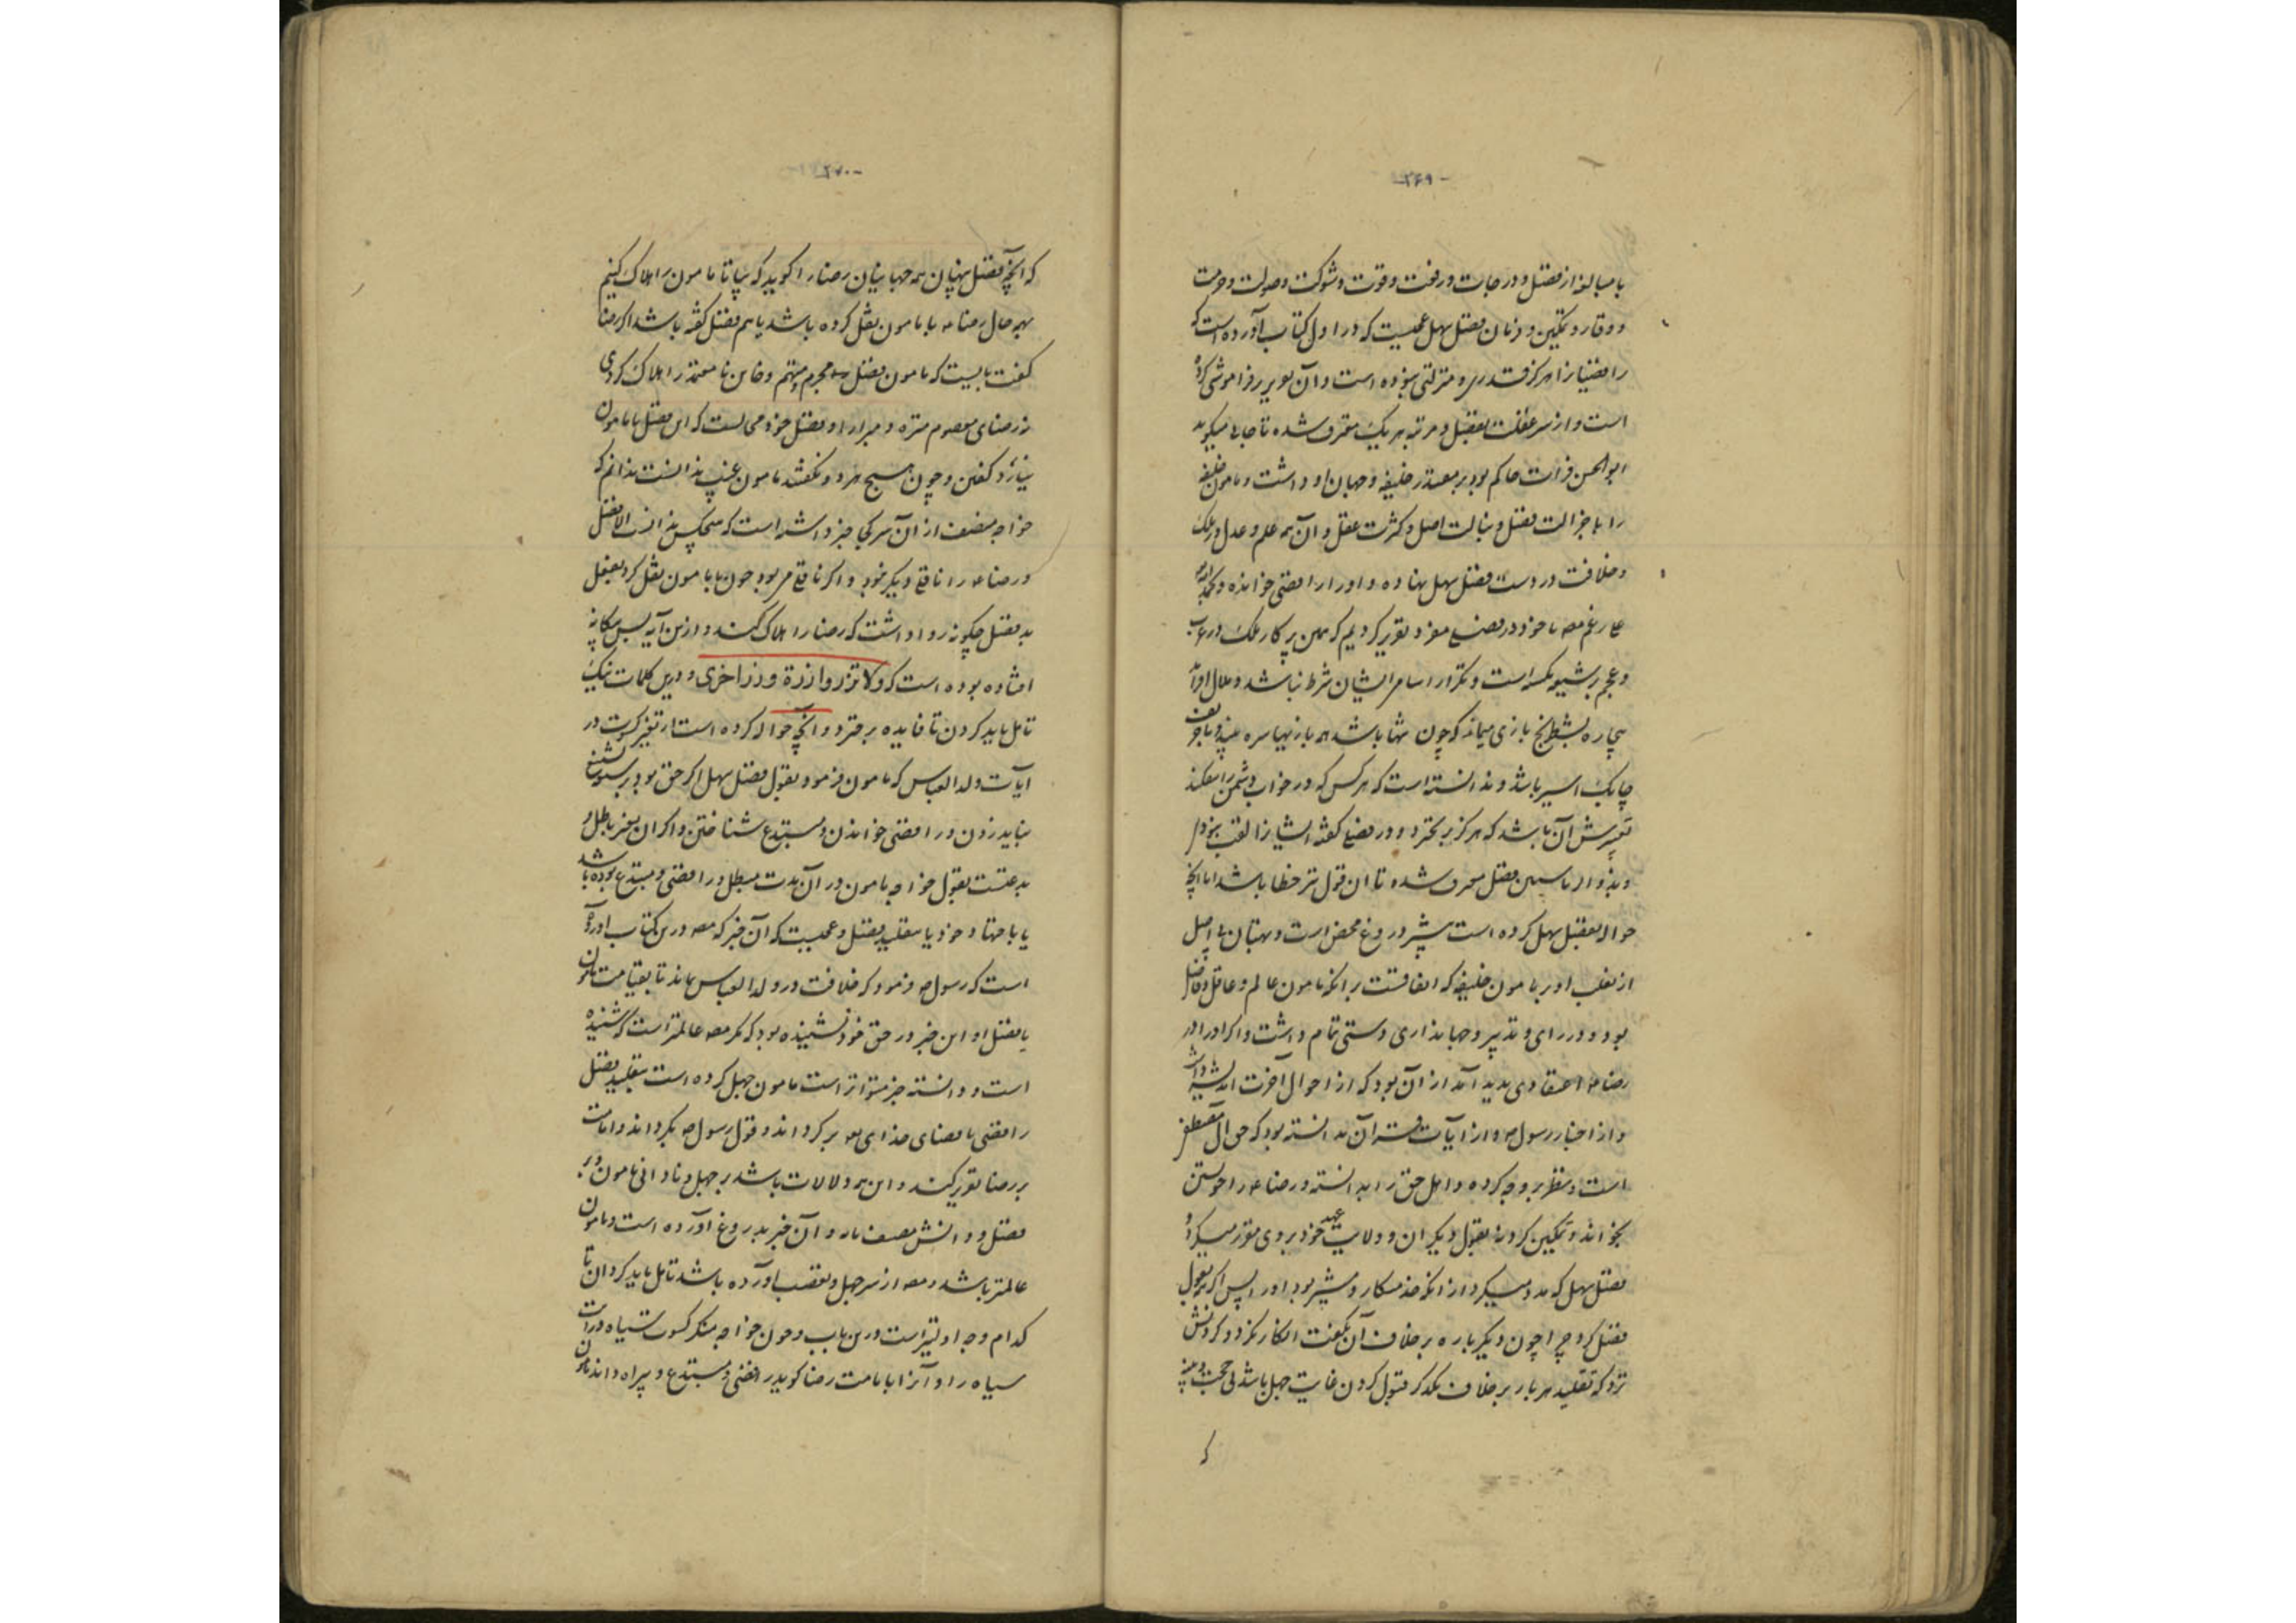 -۳۶۹-
با مبالغه از فضل و درجات و رفعت و قوت و شوکت و صولت و حرمت
و وقار و تمکین و زمان فضل سهل عجبست که در اول کتاب آورده است که
رافضیانرا هرگز قدری و منزلتی نبوده است و آن تزویر فراموش کرده
است و از سر غفلت بفضل و مرتبه هر یک معترف شده تا جایی میگوید
ابوالحسن فرات حاکم بود بر مقتدر خلیفه و جهان او داشت و مامون خلیفه
را با جزالت فضل و نبالت اصل و کثرت عقل و آن همه علم و عدل در ملک
و خلافت در دست فضل سهل نهاده و او را رافضی خوانده و بحمد الله
علی رغم مصـ ما خود در فصلی مفرد تقریر کردیم که همین پر کار ملک در عرب
و عجم بر شیعه بوده است و تکرار اسامی ایشان شرط نباشد و ملال افزاید
بیچاره بشطرنج بازی میماند که چون تنها باشد همه بازیها سره بیند و با حریف
چابک اسیر باشد و ندانسته است که هر کس که در خواب دشمن را بیفکند
تعبیرش آن باشد که هرگز برنخیزد و در فصلی گفته ایشانرا لقب نبود
و بذوالریاستین فضل معترف شده تا این قول نیز خطا باشد اما آنچه
حواله بفضل سهل کرده است بیشتر دروغ محض است و بهتان بی اصل
از تغلب او بر مامون خلیفه که اتفاقست بر آنکه مامون عالم و عاقل و فاضل
بود و در رای و تدبیر و جهانداری دستی تمام داشت و اگر او را در
رضا ع اعتقادی پدید آمد از آن بود که از احوال آخرت اندیشه داشت
و از اخبار رسول ص و از آیات قرآن بدانسته بود که حق آل مصطفی
است و نظر بر وجه کرده و اهل حق را بدانسته و رضا ع را خویشتن
بخواند و تمکین کرد نه بقول دیگران و ولایت عهد خود بر وی مقرر میکرد
فضل سهل که مدد میکرد از آنکه خدمتکار و مشیر بود او را پس اگر بقول
فضل کرد چرا چون دیگر باره بر خلاف آن بگفت انکار نکرد و گردنش
نزد که تقلید هر بار بر خلاف یکدگر قبول کردن غایت جهل باشد بی حجت و بینه
که
-۳۷۰-
که آنچه فضل پنهان همه جهانیان رضا را گوید که بیا تا مامون را هلاک کنیم
بهر حال رضا ع با مامون نقل کرده باشد یا هم فضل گفته باشد اگر رضا
گفت بایست که مامون فضل مجرم و متهم و خاین نا معتمد را هلاک کردی
نه رضای معصوم منزه و مبرا را و فضل خود محالست که این فضل با مامون
نیارد گفتن و چون هیچ هر دو نگفتند مامون غیب ندانست ندانم که
خواجه مصنف از آن سر کجا خبر داشته است که هیچکس نداند الا فضل
و رضا ع را ناقلی دیگر نبود و اگر ناقلی هر بود چون با مامون نقل کرد بفعل
بد فضل چگونه روا داشت که رضا را هلاک کنند و از این آیه پس بیگانه
افتاده بوده است که ولا تزر وازرة وزر اخری و درین کلمات نیک
تامل باید کردن تا فایده برخیزد و آنچه حواله کرده است از تغییر کسوت در
آیات ولد العباس که مامون فرمود بقول فضل سهل اگر حق بود برسولش تشنیع
نباید زدن و رافضی خواندن و مبتدع شناختن و اگر آن تغییر باطل و
بدعتست بقول خواجه مامون در آن مدت مبطل و رافضی و مبتدع بوده باشد
یا باجتهاد خود یا بتقلید فضل و عجبست که آن خبر که مصـ درین کتاب آورده
است که رسول ص فرمود که خلافت در ولد العباس بماند تا بقیامت مامون
با فضل او این خبر در حق خود نشنیده بود که مگر مصـ عالمتر است که شنیده
است و دانسته خبر متواتر است مامون جهل کرده است بتقلید فضل
رافضی یا قضای خدای تعـ برگرداند و قول رسول ص بگرداند و امامت
بر رضا تقریر کند و این همه دلالات باشد بر جهل و نادانی مامون و بر
فضل و دانش مصنف ما و آن خبر بدروغ آورده است و مامون
عالمتر باشد و مصـ از سر جهل و تعصب آورده باشد تامل باید کردن تا
کدام وجه اولیتر است درین باب و چون خواجه منکر کسوت سیاه و رایت
سیاه را و آنرا با مامت رضا گوید رافضی و مبتدع و بیراه داند مامون